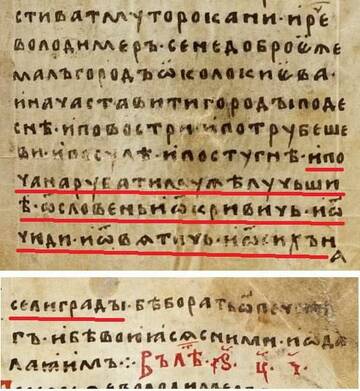 стиватмуторокани·ирⷱ҇е
володимеръ·сенедоброѡже
малъгородъѡколокиѥва·
иначаставитигородыподе
снѣ·иповостри·ипотрубеше
ви·ипосулѣ·ипостугнѣ·ипо
чанарубатимужѣлучьши
ѣ·ѿсловеньиѿкривичь·иѿ
чюди·иѿвѧтичь·иѿсихън
а
селиграды·бѣборатьѿпеченѣ
гъ·ибѣвоюꙗсѧсними·иѡдо
лаꙗимъ·:· Влѣⷮ·҂ѕ҃·